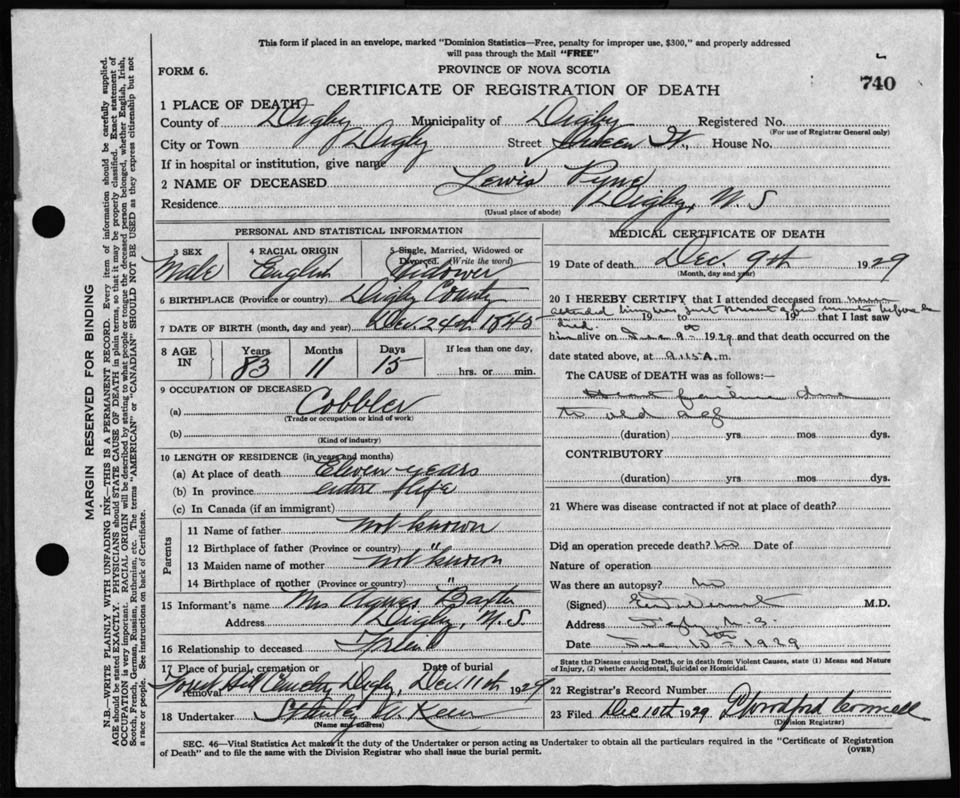 This form if placed in an envelope, marked "Dominion Statistics—Free, penalty for improper use, $300," and properly addressed
will pass through the Mail "FREE"
FORM 6.
PROVINCE OF NOVA SCOTIA
740
CERTIFICATE OF REGISTRATION OF DEATH
1 PLACE OF DEATH
County of Digby Municipality of Digby Registered No.
(For use of Registrar General only)
City or Town Digby Street Queen St., House No.
If in hospital or institution, give name
2 NAME OF DECEASED Lewis Pyne
Residence Digby, N.S
(Usual place of abode)
PERSONAL AND STATISTICAL INFORMATION
3 SEX Male
4 RACIAL ORIGIN English
5 Single, Married, Widowed or Divorced. (Write the word) Widower
6 BIRTHPLACE (Province or country) Digby County
7 DATE OF BIRTH (month, day and year) Dec. 24th 1845
8 AGE IN
Years Months Days If less than one day,
83 11 15 hrs. or min.
9 OCCUPATION OF DECEASED
(a) Cobbler
(Trade or occupation or kind of work)
(b)
(Kind of industry)
10 LENGTH OF RESIDENCE (in years and months)
(a) At place of death Eleven years
(b) In province entire life
(c) In Canada (if an immigrant)
Parents
11 Name of father not known
12 Birthplace of father (Province or country) "
13 Maiden name of mother not known
14 Birthplace of mother (Province or country) "
15 Informant's name Mrs Agnes Baxter
Address Digby, N.S.
16 Relationship to deceased Friend
17 Place of burial, cremation or removal Forest Hill Cemetery Digby, Date of burial Dec. 11th 1929
18 Undertaker Stanley W. Keen
(Name and address)
MEDICAL CERTIFICATE OF DEATH
19 Date of death Dec. 9th 1929
(Month, day and year)
20 I HEREBY CERTIFY that I attended deceased from
attended him was just present a few minutes before he
19 to 19 that I last saw
died.
him alive on Dec 9 1929 and that death occurred on the
date stated above, at 9.15 A.m.
The CAUSE of DEATH was as follows:—
Heart failure due
to old age
(duration) yrs mos dys.
CONTRIBUTORY
(duration) yrs mos dys.
21 Where was disease contracted if not at place of death?
Did an operation precede death? No Date of
Nature of operation
Was there an autopsy? No
(Signed) M.D.
Address Digby N.S.
Date Dec 10th 1929
State the Disease causing Death, or in death from Violent Causes, state (1) Means and Nature
of Injury, (2) whether Accidental, Suicidal or Homicidal.
22 Registrar's Record Number
23 Filed Dec 10th 1929
(Division Registrar)
SEC. 46—Vital Statistics Act makes it the duty of the Undertaker or person acting as Undertaker to obtain all the particulars required in the "Certificate of Registration
of Death" and to file the same with the Division Registrar who shall issue the burial permit.
(OVER)
MARGIN RESERVED FOR BINDING
N.B.—WRITE PLAINLY WITH UNFADING INK—THIS IS A PERMANENT RECORD. Every item of information should be carefully supplied.
AGE should be stated EXACTLY. PHYSICIANS should STATE CAUSE OF DEATH in plain terms, so that it may be properly classified. Exact statement of
OCCUPATION is very important. RACIAL ORIGIN will be described by stating to what people or tongue the deceased person belonged, whether English, Irish,
Scotch, French, German, Russian, Ruthenian, etc. The terms "AMERICAN" or "CANADIAN" SHOULD NOT BE USED as they express citizenship but not
a race or people. See instructions on back of Certificate.